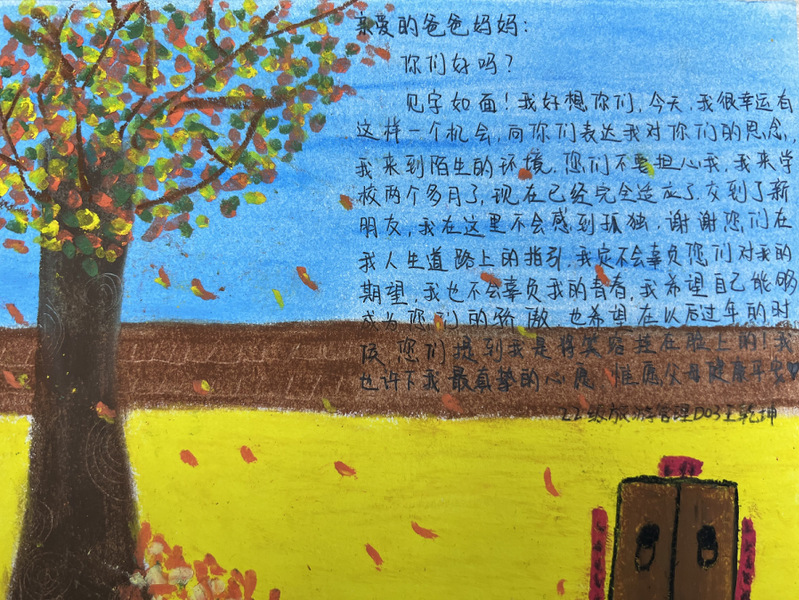 亲爱的爸爸妈妈：
你们好吗？
见字如面！我好想你们，今天，我很幸运有
这样一个机会，向你们表达我对你们的思念，
我来到陌生的环境，您们不要担心我，我来学
校两个多月了，现在已经完全适应了，交到了新
朋友，我在这里不会感到孤独，谢谢您们在
我人生道路上的指引，我定不会辜负您们对我的
期望，我也不会辜负我的青春，我希望自己能够
成为你们的骄傲，也希望在以后过年的时
候，您们提到我是将笑容挂在脸上的！我
也许下我最真挚的心愿，惟愿父母健康平安
22级旅游管理D03王乾坤